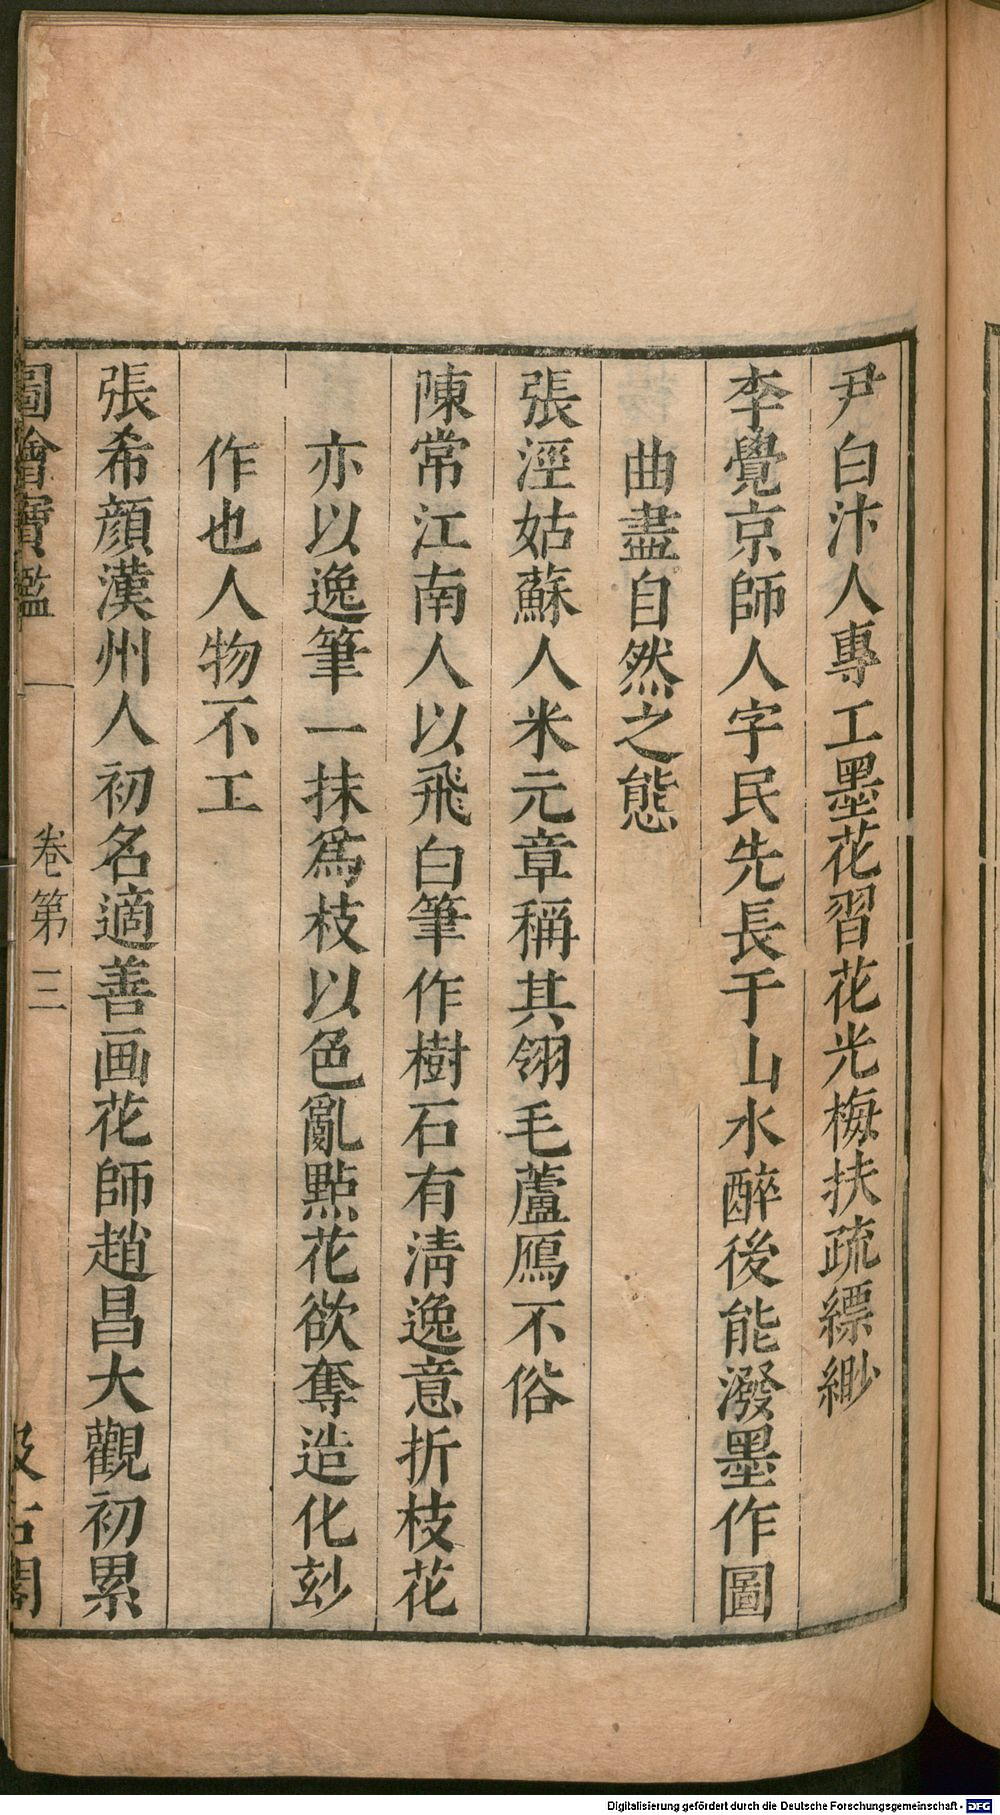 尹白汴人專工墨花習花光梅扶疏縹緲
李覺京師人字民先長于山水醉後能潑墨作圖
曲盡自然之態
張涇姑蘇人米元章稱其翎毛蘆鴈不俗
陳常江南人以飛白筆作樹石有清逸意折枝花
亦以逸筆一抹爲枝以色亂點花欲奪造化玅
作也人物不工
張希顔漢州人初名適善画花師趙昌大觀初累
圖繪寶鑑 卷第三 汲古閣
Digitalisierung gefördert durch die Deutsche Forschungsgemeinschaft - DFG